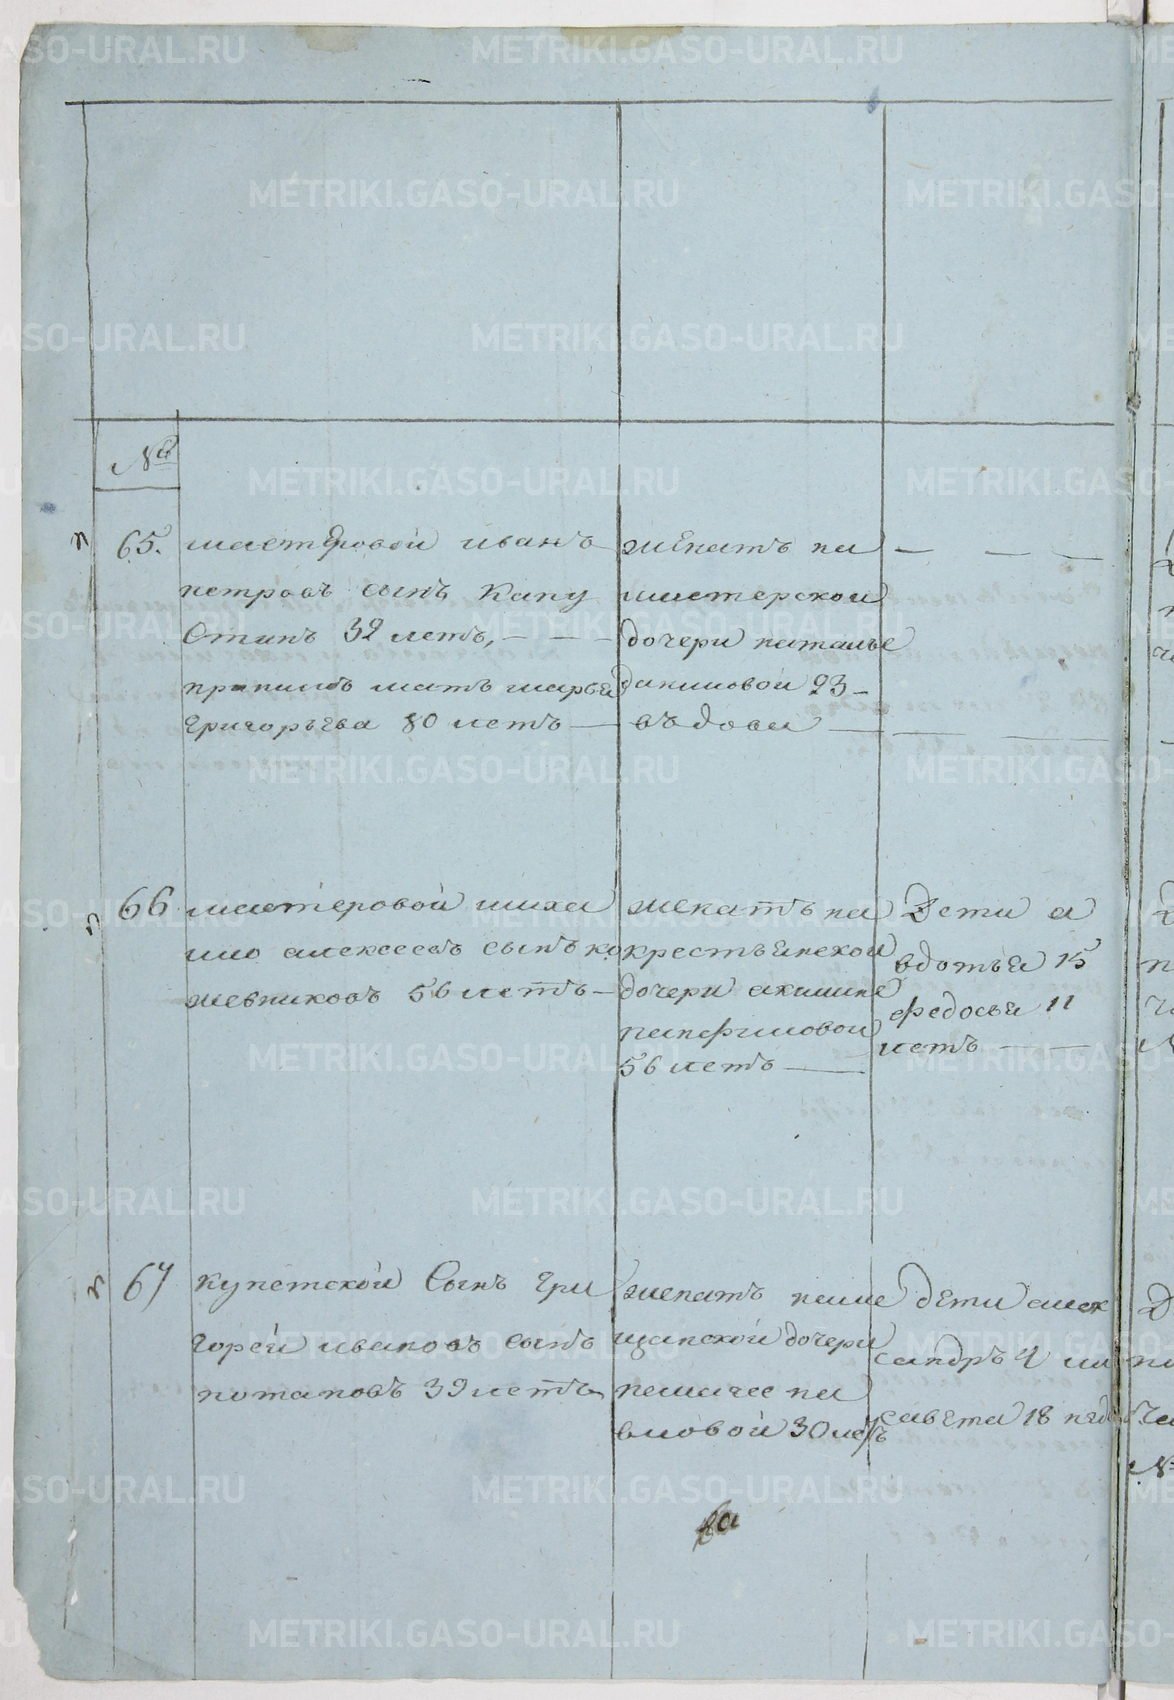 №
65. мастеровой иванъ
петровъ сынъ Капу
стинъ 32 летъ,
мать марья
григорьева 80 летъ
женатъ на
мастерской
дочери наталье
даниловой 23
вдова
66 мастеровой миха
ило алексеевъ сынъ ко
жевниковъ 56 летъ
женатъ на
крестьянской
дочери акилине
панфиловой
56 летъ
Дети а
вдотья 15
федосья 11
летъ
67 купетской Сынъ гри
горей ивановъ сынъ
потаповъ 39 летъ
женатъ наме
щанской дочери
пелагее па
вловой 30 летъ
дети алек
сандръ 4 ли
савета 18 нед
METRIKI.GASO-URAL.RU